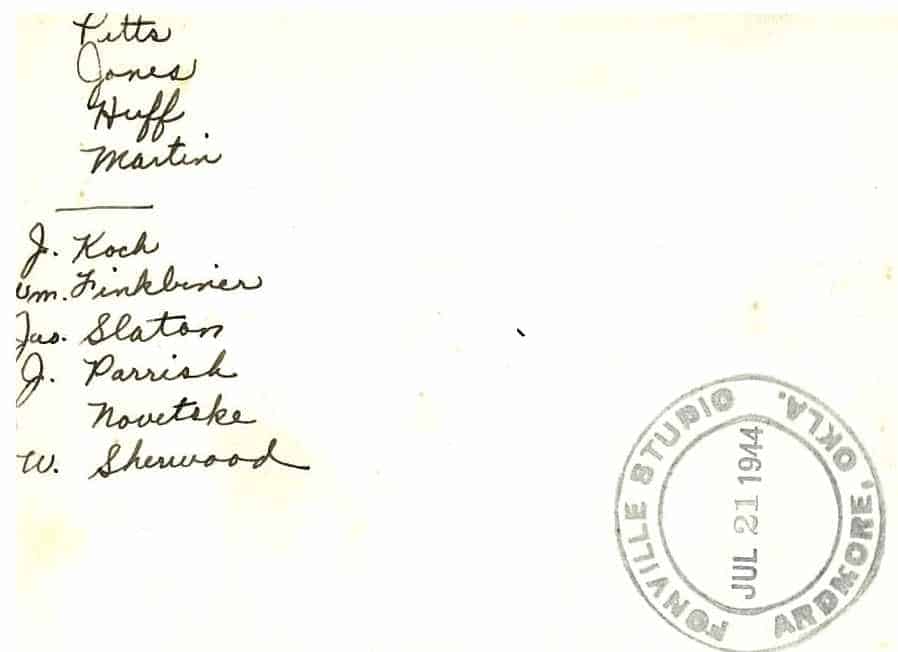 Pitts
Jones
Huff
Martin
J. Koch
Wm. Finkbiner
Jas. Slaton
J. Parrish
Novetske
W. Sherwood
FONVILLE STUDIO
ARDMORE, OKLA.
JUL 21 1944